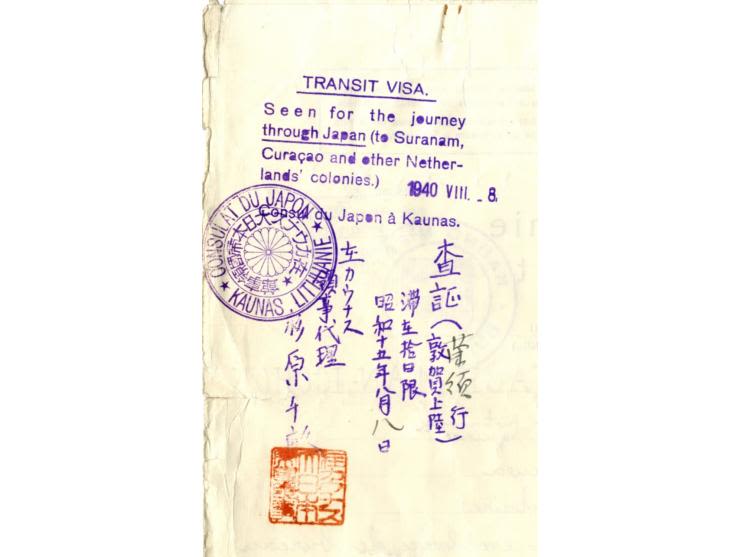 TRANSIT VISA.
Seen for the journey
through Japan (to Suranam,
Curaçao and other Nether-
lands' colonies.)
1940 VIII. - 8
Consul du Japon à Kaunas.
CONSULAT DU JAPON
KAUNAS, LITHUANIE
査証(敦賀上陸)
行
滞在拾日限
昭和十五年八月八日
在カウナス
領事代理
杉原千畝